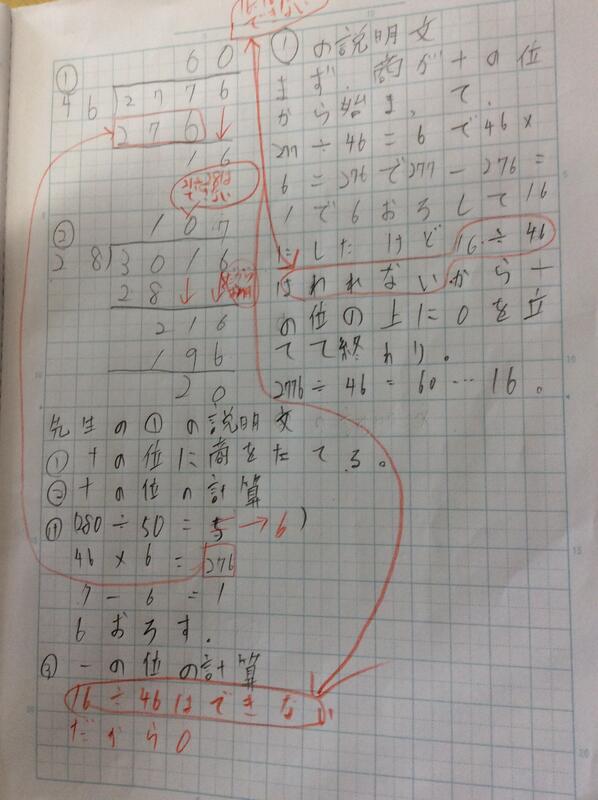 できない
①
60
46)2776
276
16
②
107
28)3016
28
216
196
20
①の説明文
まず、商が十の位
から始まって、
277÷46=6で46×
6=276で277-276=
1で6おろして16
にしたけど16÷46
はわれないから一
の位の上に0を位
てて終わり。
2776÷46=60…16。
先生の①の説明文
①十の位に商をたてる。
②十の位の計算
(280÷50=5→6)
46×6=276
7-6=1
6おろす。
③一の位の計算
16÷46はできない
だから0